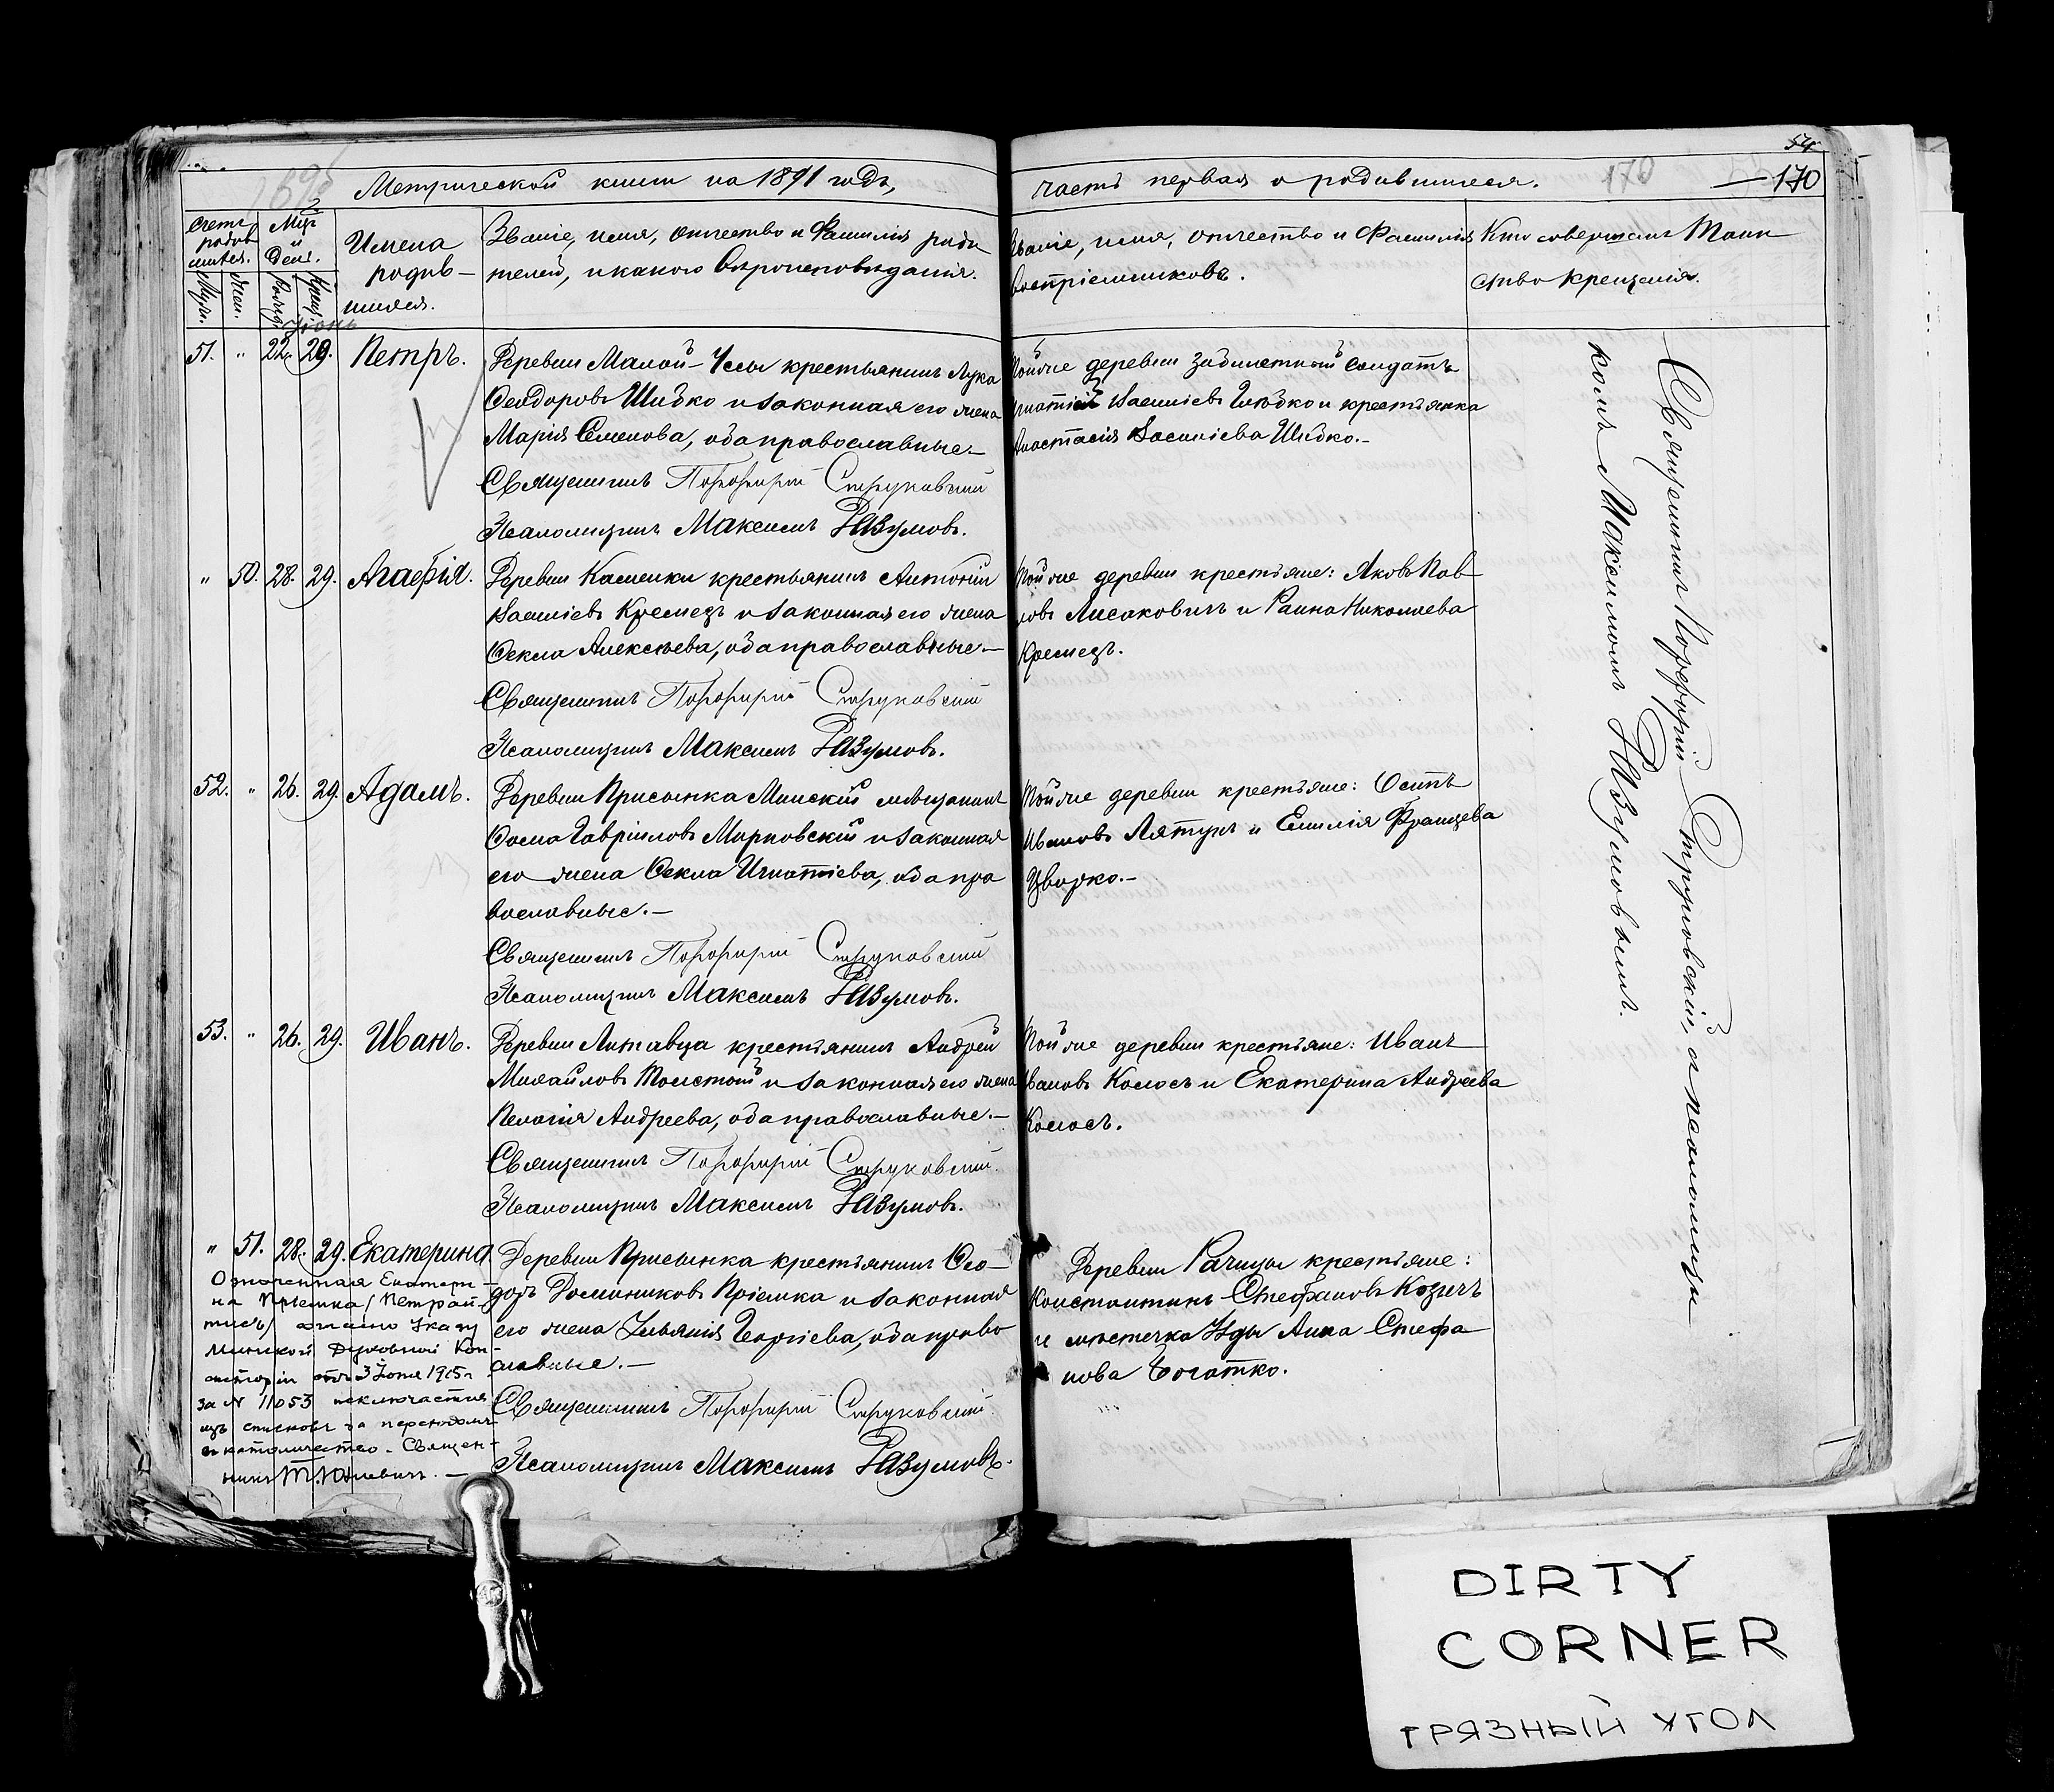 Метрической книги на 1891 годъ,
часть первая о родившихся.
170
54
— 170
Счетъ родив
шихся.
Мцъ
и
День.
Муж.
Жен.
Рожд.
Крещ.
Имена
родив—
шихся.
Званіе, имя, отчество и Фамилія роди
телей, и какого Вѣроисповѣданія.
Званіе, имя, отчество и Фамилія
воспріемниковъ.
Кто совершалъ Таин
ство крещенія.
Іюнь
51. " 22. 29. Петръ.
Деревни Малой-Усы крестьянинъ Лука
Ѳеодоровъ Шибко и законная его жена
Марія Семенова, оба православные.—
Священникъ Порфирій Струковскій
Псаломщикъ Максимъ Разумовъ.
Той же деревни забилетный солдатъ
Игнатій Василіевъ и крестьянка
Анастасія Василіева Шибко.—
" 50. 28. 29. Агафія.
Деревни Каменки крестьянинъ Антоній
Василіевъ Кремезъ и законная его жена
Ѳекла Алексѣева, оба православные.—
Священникъ Порфирій Струковскій
Псаломщикъ Максимъ Разумовъ.
Той же деревни крестьяне: Яковъ Пав
ловъ Лисаковичъ и Раина Николаева
Кремезъ.
52. " 26. 29. Адамъ.
Деревни Присынка Минскій мѣщанинъ
Ѳома Гавріиловъ Мирковскій и законная
его жена Ѳекла Игнатіева, оба пра
вославные.—
Священникъ Порфирій Струковскій
Псаломщикъ Максимъ Разумовъ.
Той же деревни крестьяне: Осипъ
Ивановъ Лятунъ и Емилія Францева
Цвирко.—
53. " 26. 29. Иванъ.
Деревни Литавца крестьянинъ Андрей
Михайловъ Толстой и законная его жена
Пелагія Андреева, оба православные.—
Священникъ Порфирій Струковскій
Псаломщикъ Максимъ Разумовъ.
Той же деревни крестьяне: Иванъ
Ивановъ Колосъ и Екатерина Андреева
Колосъ.
" 51. 28. 29. Екатерина.
Деревни Присынка крестьянинъ Ѳео—
доръ Доминиковъ Пріемка и законная
его жена Ульянія Георгіева, оба право
славные.—
Священникъ Порфирій Струковскій
Псаломщикъ Максимъ Разумовъ.
Деревни Рачицы крестьяне:
Константинъ Стефановъ Козичъ
и мѣстечка Узды Анна Стефа
нова Богатко.
Означенная Екатери—
на Пріемка /Петрай—
тись/ согласно Указу
Минской Духовной Кон—
систоріи отъ 3 Іюня 1915 г.
за № 11053 исключается
изъ списковъ за переходомъ
въ католичество. Священ—
никъ
Священникъ Порфирій Струковскій, съ псаломщи
комъ Максимомъ Разумовымъ.
DIRTY
CORNER
ГРЯЗНЫЙ УГОЛ